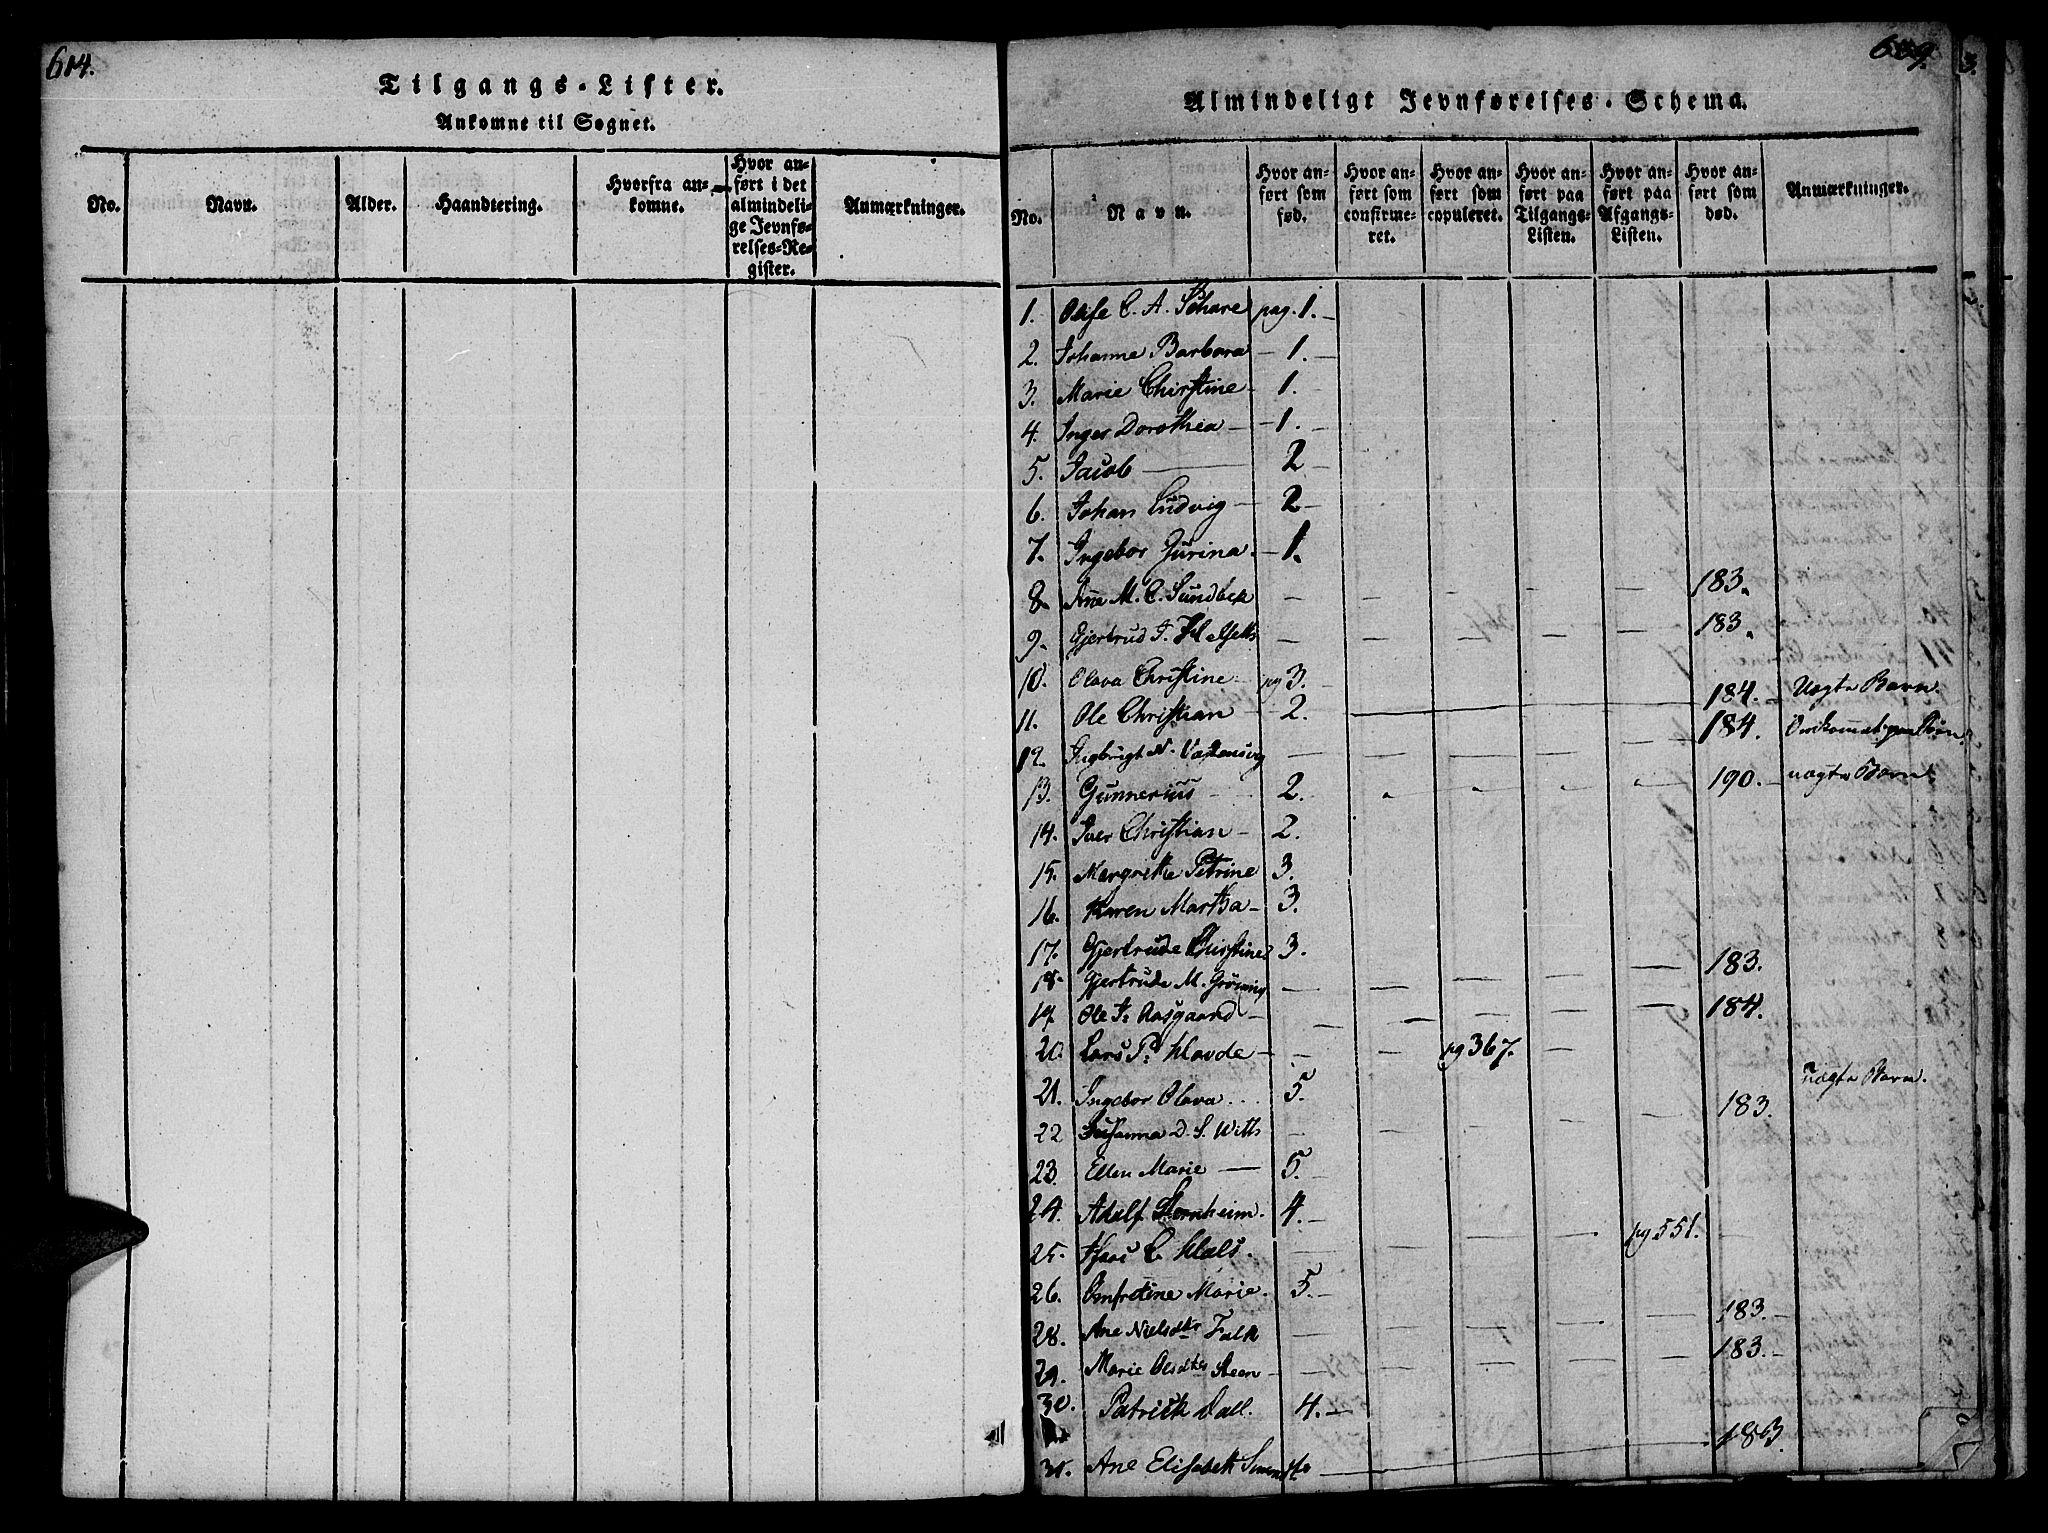 614.
Tilgangs-Lister.
Ankomne til Sognet.
No. Navn. Alder. Haandtering. Hvorfra ankomne. Hvor anført i det almindelige Jevnførelses-Register. Anmærkninger.
Almindeligt Jevnførelses-Schema.
No. Navn. Hvor anført som fød. Hvor anført som confirmeret. Hvor anført som copuleret. Hvor anført paa Tilgangs-Listen. Hvor anført paa Afgangs-Listen. Hvor anført som død. Anmærkninger.
1. C. A. Schare pag. 1.
2. Johanne Barbara 1.
3. Marie Chirstine 1.
4. Inger Dorothea 1.
5. Jacob 2
6. Johan Ludvig 2
7. Ingebor Gurina 1.
8. Ane M. C. Sundbek 183.
9. Gjertrud J. 183.
10. Olava Christine pg 3.
11. Ole Christian 2. 184. Uægte Barn.
12. Ingbrigt N. 184.
13. Gunnerius 2. 190. uægte Barn.
14. Iver Christian 2.
15. Margrethe Petrine 3.
16. Karen Martha 3.
17. Gjertrude Chirstine 3.
18. Gjertrude M. Grönning 183.
19. Ole J. Aasgaard 184.
20. Lars P. Havde pg 367.
21. Ingebor Olava 5. Uægte Barn.
22 Susanna D. S. Witts 183.
23. Ellen Marie 5.
24. Adolf Stornheim. 4.
25. C. Hals. pg 551.
26. Marie. 5.
28. Ane Nielsdtr Falk 183.
29. Marie Olsdtr Steen 183.
30. Patrick Dall. 4.
31. Ane Elisabeth 183.